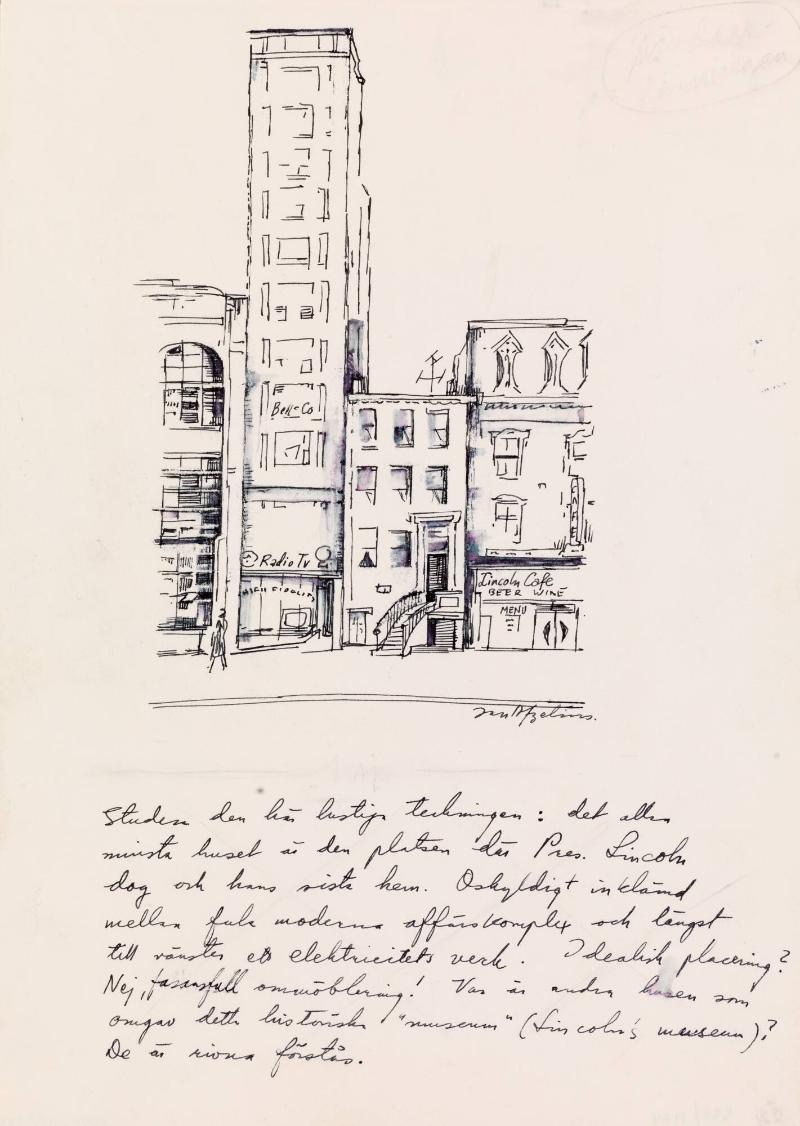 Bell-Co
Radio Tv
HIGH FIDELITY
Lincoln Cafe
BEER WINE
MENU
Jan Afzelius.
Studera den här lustiga teckningen: det allra
minsta huset är den platsen där Pres. Lincoln
dog och hans sista hem. Oskyldigt inklämd
mellan fula moderna affärskomplex och längst
till vänster ett elektricitets verk. Idealisk placering?
Nej, fasansfull ommöblering! Var är andra husen som
omgav detta historiska "museum" (Lincoln's museum)?
De är rivna förstås.